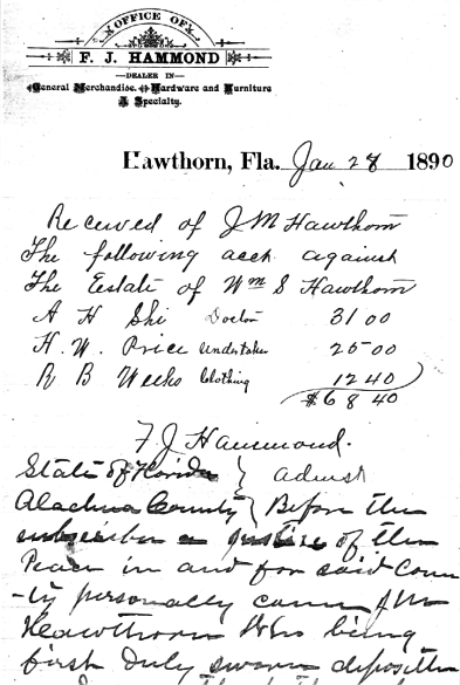 OFFICE OF
F. J. HAMMOND
DEALER IN
General Merchandise. Hardware and Furniture
A Specialty.
Hawthorn, Fla. Jan 28 1890
Received of J M Hawthorn
The following acct against
The Estate of Wm S Hawthorn
A H Shi Doctor 31 00
H. W. Price undertaker 25 00
R B Weeks Clothing 12 40
$68 40
F J Hammond.
State of Florida } admst
Alachua County } Before the
subscriber a justice of the
Peace in and for said Coun
-ty personally came J M
Hawthorn Who being
first duly sworn